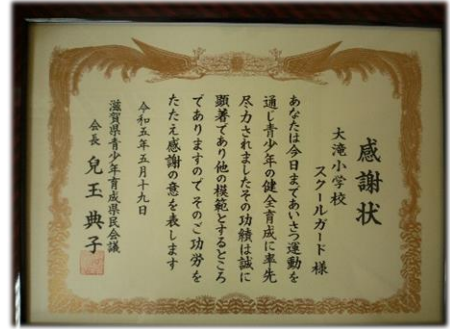 感謝状
大滝小学校
スクールガード 様
あなたは今日まであいさつ運動を
通じ青少年の健全育成に率先
尽力されましたその功績は誠に
顕著であり他の模範とするところ
でありますので そのご功労を
たたえ感謝の意を表します
令和五年五月十九日
滋賀県青少年育成県民会議
会長 兒玉典子